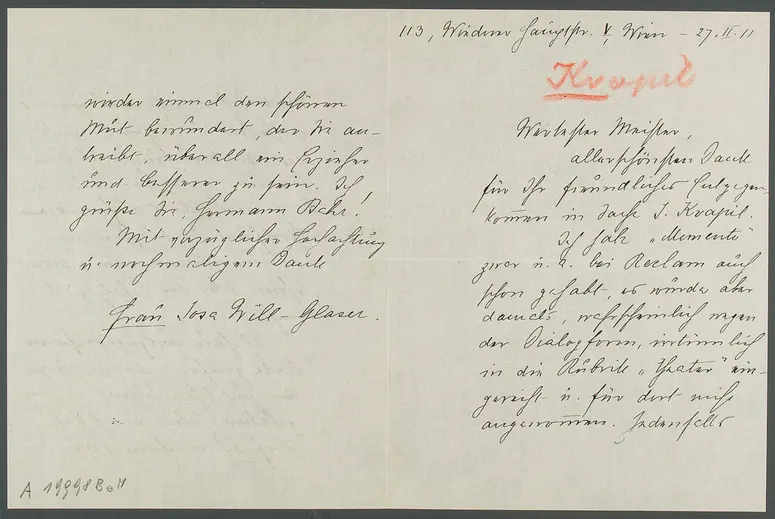 113, Wiedener Hauptstr. V, Wien – 27. II. 11
Kvapil
Wertester Meister,
allerschönsten Dank
für Ihr freundliches Entgegen-
kommen in Sache J. Kvapil.
Ich habe „Memento"
zwar u. a. bei Reclam auch
schon gehabt, es wurde aber
damals, wahrscheinlich wegen
der Dialogform, irrtümlich
in die Rubrik „Theater" ein-
gereiht u. für dort nicht
angenommen. Jedenfalls
wieder einmal den schönen
Mut bewundert, der Sie an-
treibt, überall ein Erzieher
und Besserer zu sein. Ich
grüße Sie, Hermann Bahr!
Mit vorzüglicher Hochachtung
u. nochmaligem Danke
Frau Josa Will-Glaser.
A 19998